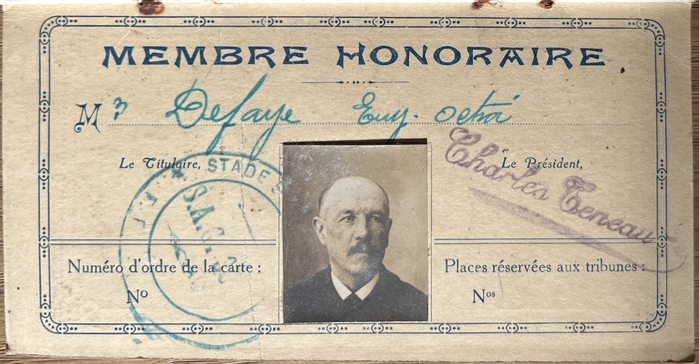 MEMBRE HONORAIRE
M r Defaye Eug. octroi
Le Titulaire,
Le Président,
Charles Teneau
STADE
S.A.
Numéro d'ordre de la carte :
Places réservées aux tribunes :
No
Nos